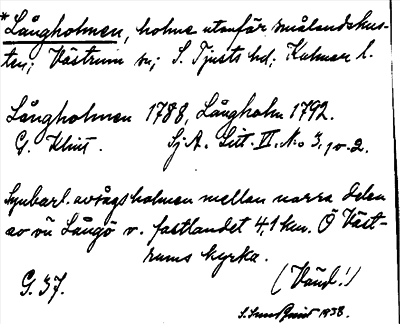 *Långholmen, holme utanför smålandskus-
ten; Västrum sn; S. Tjusts hd; Kalmar l.
Långholmen 1788, Långholm 1792.
G. Klint. SjA. Litt. VI. N:o 3, 2.
Synbarl. avsågs holmen mellan norra delen
av ön Långö o. fastlandet 4.1 km. Ö Väst-
rums kyrka.
G. 37. (Vänd!)
1938.